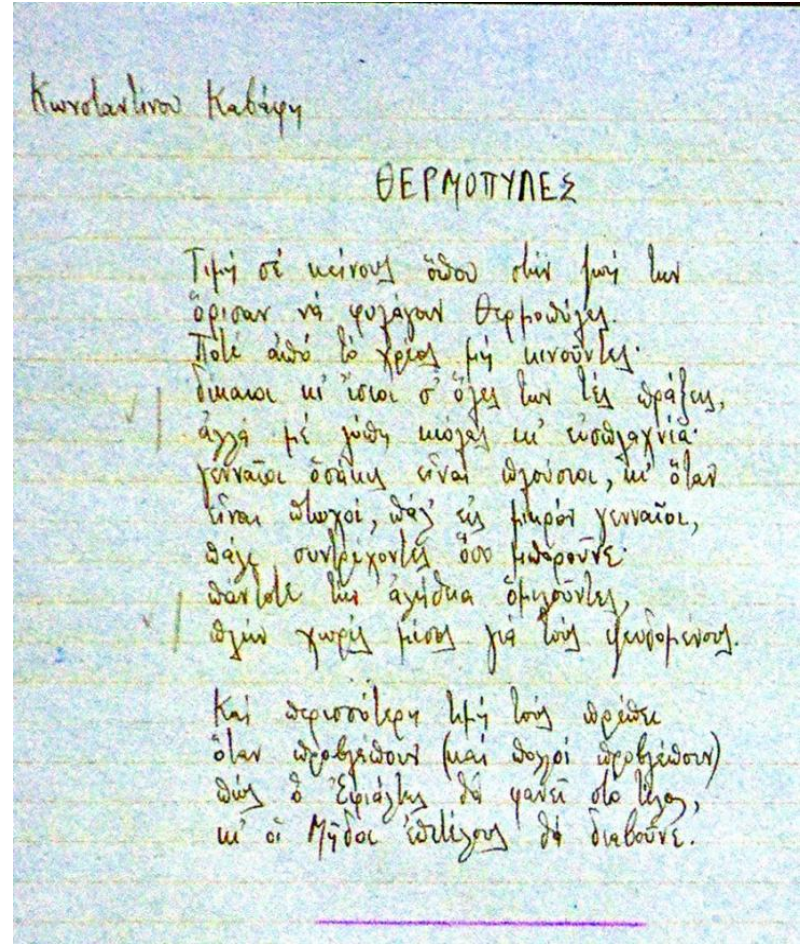 Κωνσταντίνου Καβάφη
ΘΕΡΜΟΠΥΛΕΣ
Τιμή σέ κείνους ὅπου στήν ζωή των
ὅρισαν νά φυλάγουν Θερμοπύλες.
Ποτέ ἀπό τό χρέος μή κινοῦντες·
δίκαιοι κι' ἴσιοι σ' ὅλες των τές πράξεις,
ἀλλά μέ λύπη κιόλας κι' εὐσπλαχνία·
γενναῖοι ὁσάκις εἶναι πλούσιοι, κι' ὅταν
εἶναι πτωχοί, πάλ' εἰς μικρόν γενναῖοι,
πάλι συντρέχοντες ὅσο μποροῦνε·
πάντοτε τήν ἀλήθεια ὁμιλοῦντες,
πλήν χωρίς μῖσος γιά τούς ψευδομένους.
Καί περισσότερη τιμή τούς πρέπει
ὅταν προβλέπουν (καί πολλοί προβλέπουν)
πώς ὁ Ἐφιάλτης θά φανεῖ στό τέλος,
κι' οἱ Μῆδοι ἐπιτέλους θά διαβοῦνε.